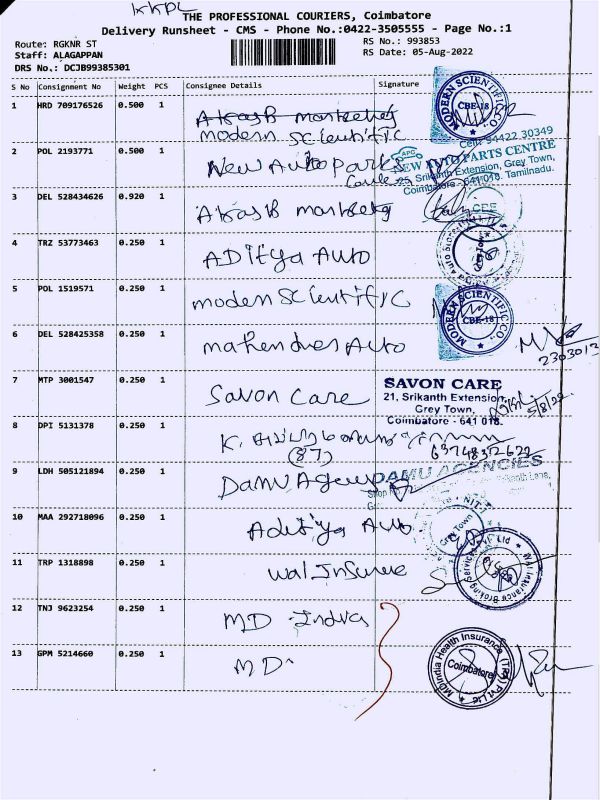 KKPL
THE PROFESSIONAL COURIERS, Coimbatore
Delivery Runsheet - CMS - Phone No.:0422-3505555 - Page No.:1
Route: RGKNR ST
Staff: ALAGAPPAN
DRS No.: DCJB99385301
RS No.: 993853
RS Date: 05-Aug-2022
S No Consignment No Weight PCS Consignee Details Signature
1 HRD 709176526 0.500 1 Akash marketing
modern scientific
MODERN SCIENTIFIC CO. CBE-18
2 POL 2193771 0.500 1 New Auto parts
Cell: 94422 30349
NEW AUTO PARTS CENTRE
25, Srikanth Extension, Grey Town,
Coimbatore - 641 018. Tamilnadu.
3 DEL 528434626 0.920 1 Akash marketing
CBE
4 TRZ 53773463 0.250 1 ADitya AUTO
5 POL 1519571 0.250 1 modern scientific
MODERN SCIENTIFIC CO. CBE-18
6 DEL 528425358 0.250 1 mahendra Auto
2303013
7 MTP 3001547 0.250 1 Savon Care
SAVON CARE
21, Srikanth Extension,
Grey Town,
Coimbatore - 641 018.
5/8/22
8 DPI 5131378 0.250 1 K.
(87) 6374832622
9 LDH 505121894 0.250 1 Damu Agency
DAMU AGENCIES
10 MAA 292718096 0.250 1 Aditya Auto
Grey Town
11 TRP 1318898 0.250 1 Wal Insure
Wal Insurance Broking Services Pvt. Ltd
12 TNJ 9623254 0.250 1 MD India
13 GPM 5214660 0.250 1 MD
MDIndia Health Insurance (TPA) Pvt Ltd Coimbatore